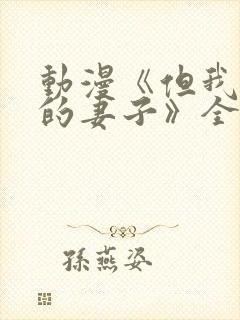 動漫《但我
的妻子》全
孫燕姿